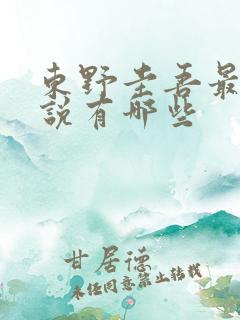 東野圭吾最
說有哪些
甘居德
未经同意禁止转载